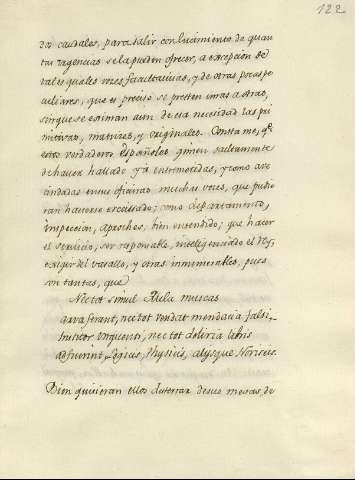 122
dos caudales, para salir con lucimiento de quan
tas urgencias se la pueden ofrecer, a excepcion de
tales quales vozes facultativas, y de otras pocas pe
culiares, que es preciso se presten unas a otras,
sin que se eximan aun de esa necesidad las pri
mitivas, matrices, y originales. Consta me, qe
estos verdaderos Españoles gimen altamente
de haver hallado ya entrometidas, y como ave
cindadas en sus oficinas muchas voces, que pudie
ran haverse escusado; como departamento,
inspeccion, aproches, bien entendido; que hacer
el servicio, ser responsable, inteligenciado el Rey,
exigir del vasallo, y otras innumerables, pues
son tantas, que
Nec tot simul Aula muscas
arva ferant, nec tot vendat mendacia falsi
institor unguenti, nec tot deliria libris
adfuerint Logicus, Physicus, alysque
Bien quisieran ellos desterrar de sus mesas, de